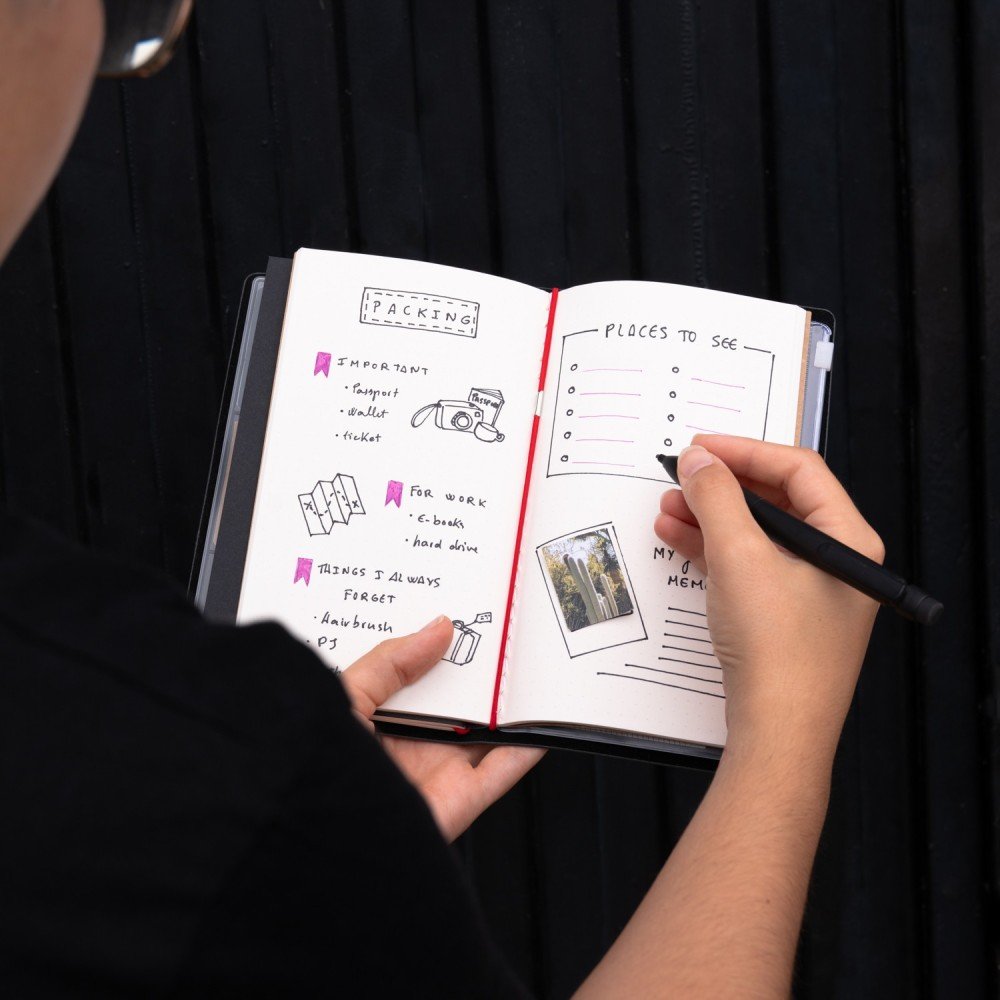 PACKING
IMPORTANT
• Passport
• Wallet
• ticket
PASSPORT
FOR WORK
• E-books
• hard drive
THINGS I ALWAYS
FORGET
• Hairbrush
• PJ
PLACES TO SEE
MY